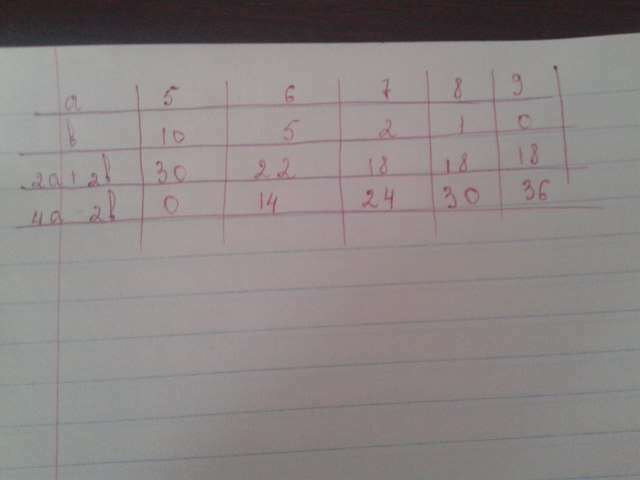 a 5 6 7 8 9
b 10 5 2 1 0
2a+2b 30 22 18 18 18
4a-2b 0 14 24 30 36